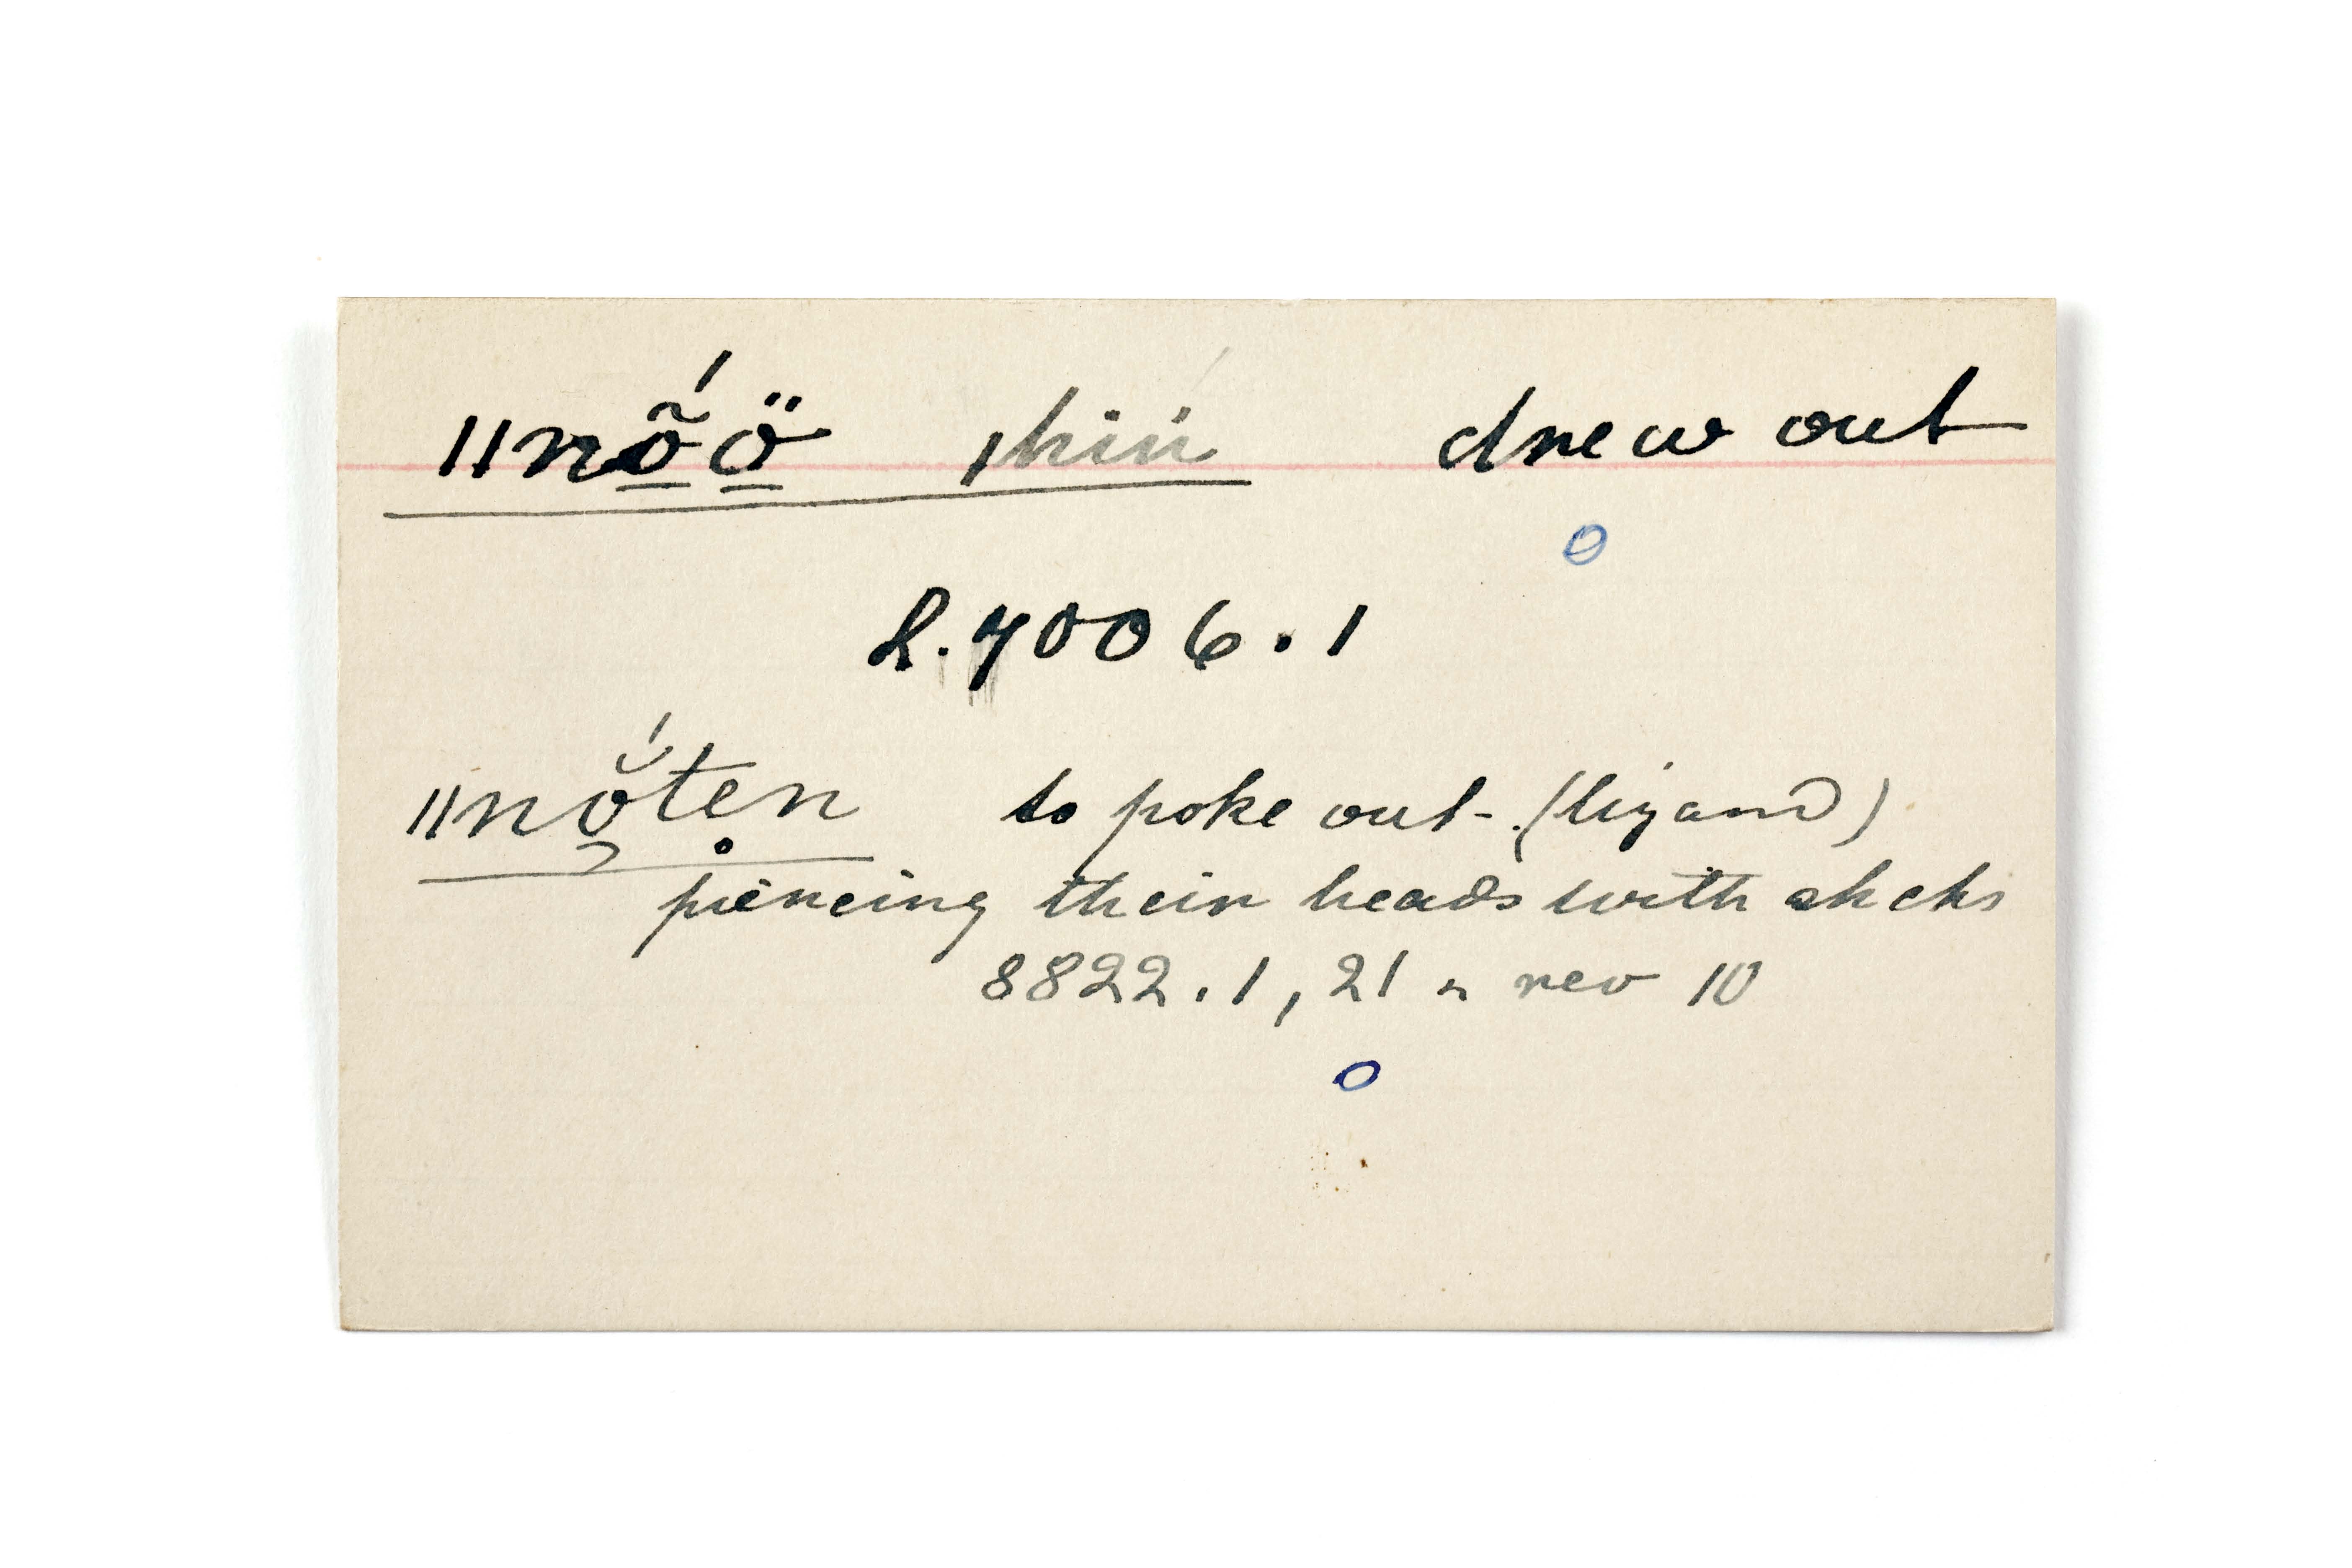 ǁnṍ̱ö̱ |hiń drew out
L.4006.1
ǁnŏ́tẹn to poke out. (lizard)
piercing their heads with sticks
8822.1, 21 " rev 10